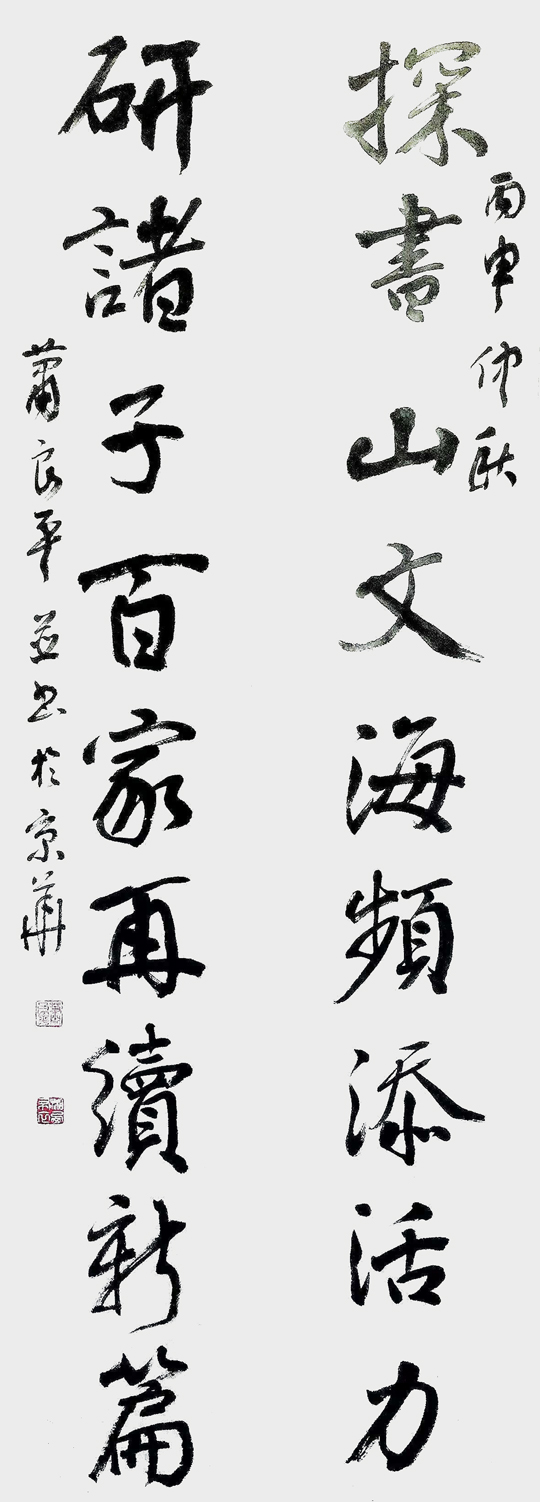 丙申仲秋
探書山文海頻添活力
研諸子百家再續新篇
蕭良平並书於京華